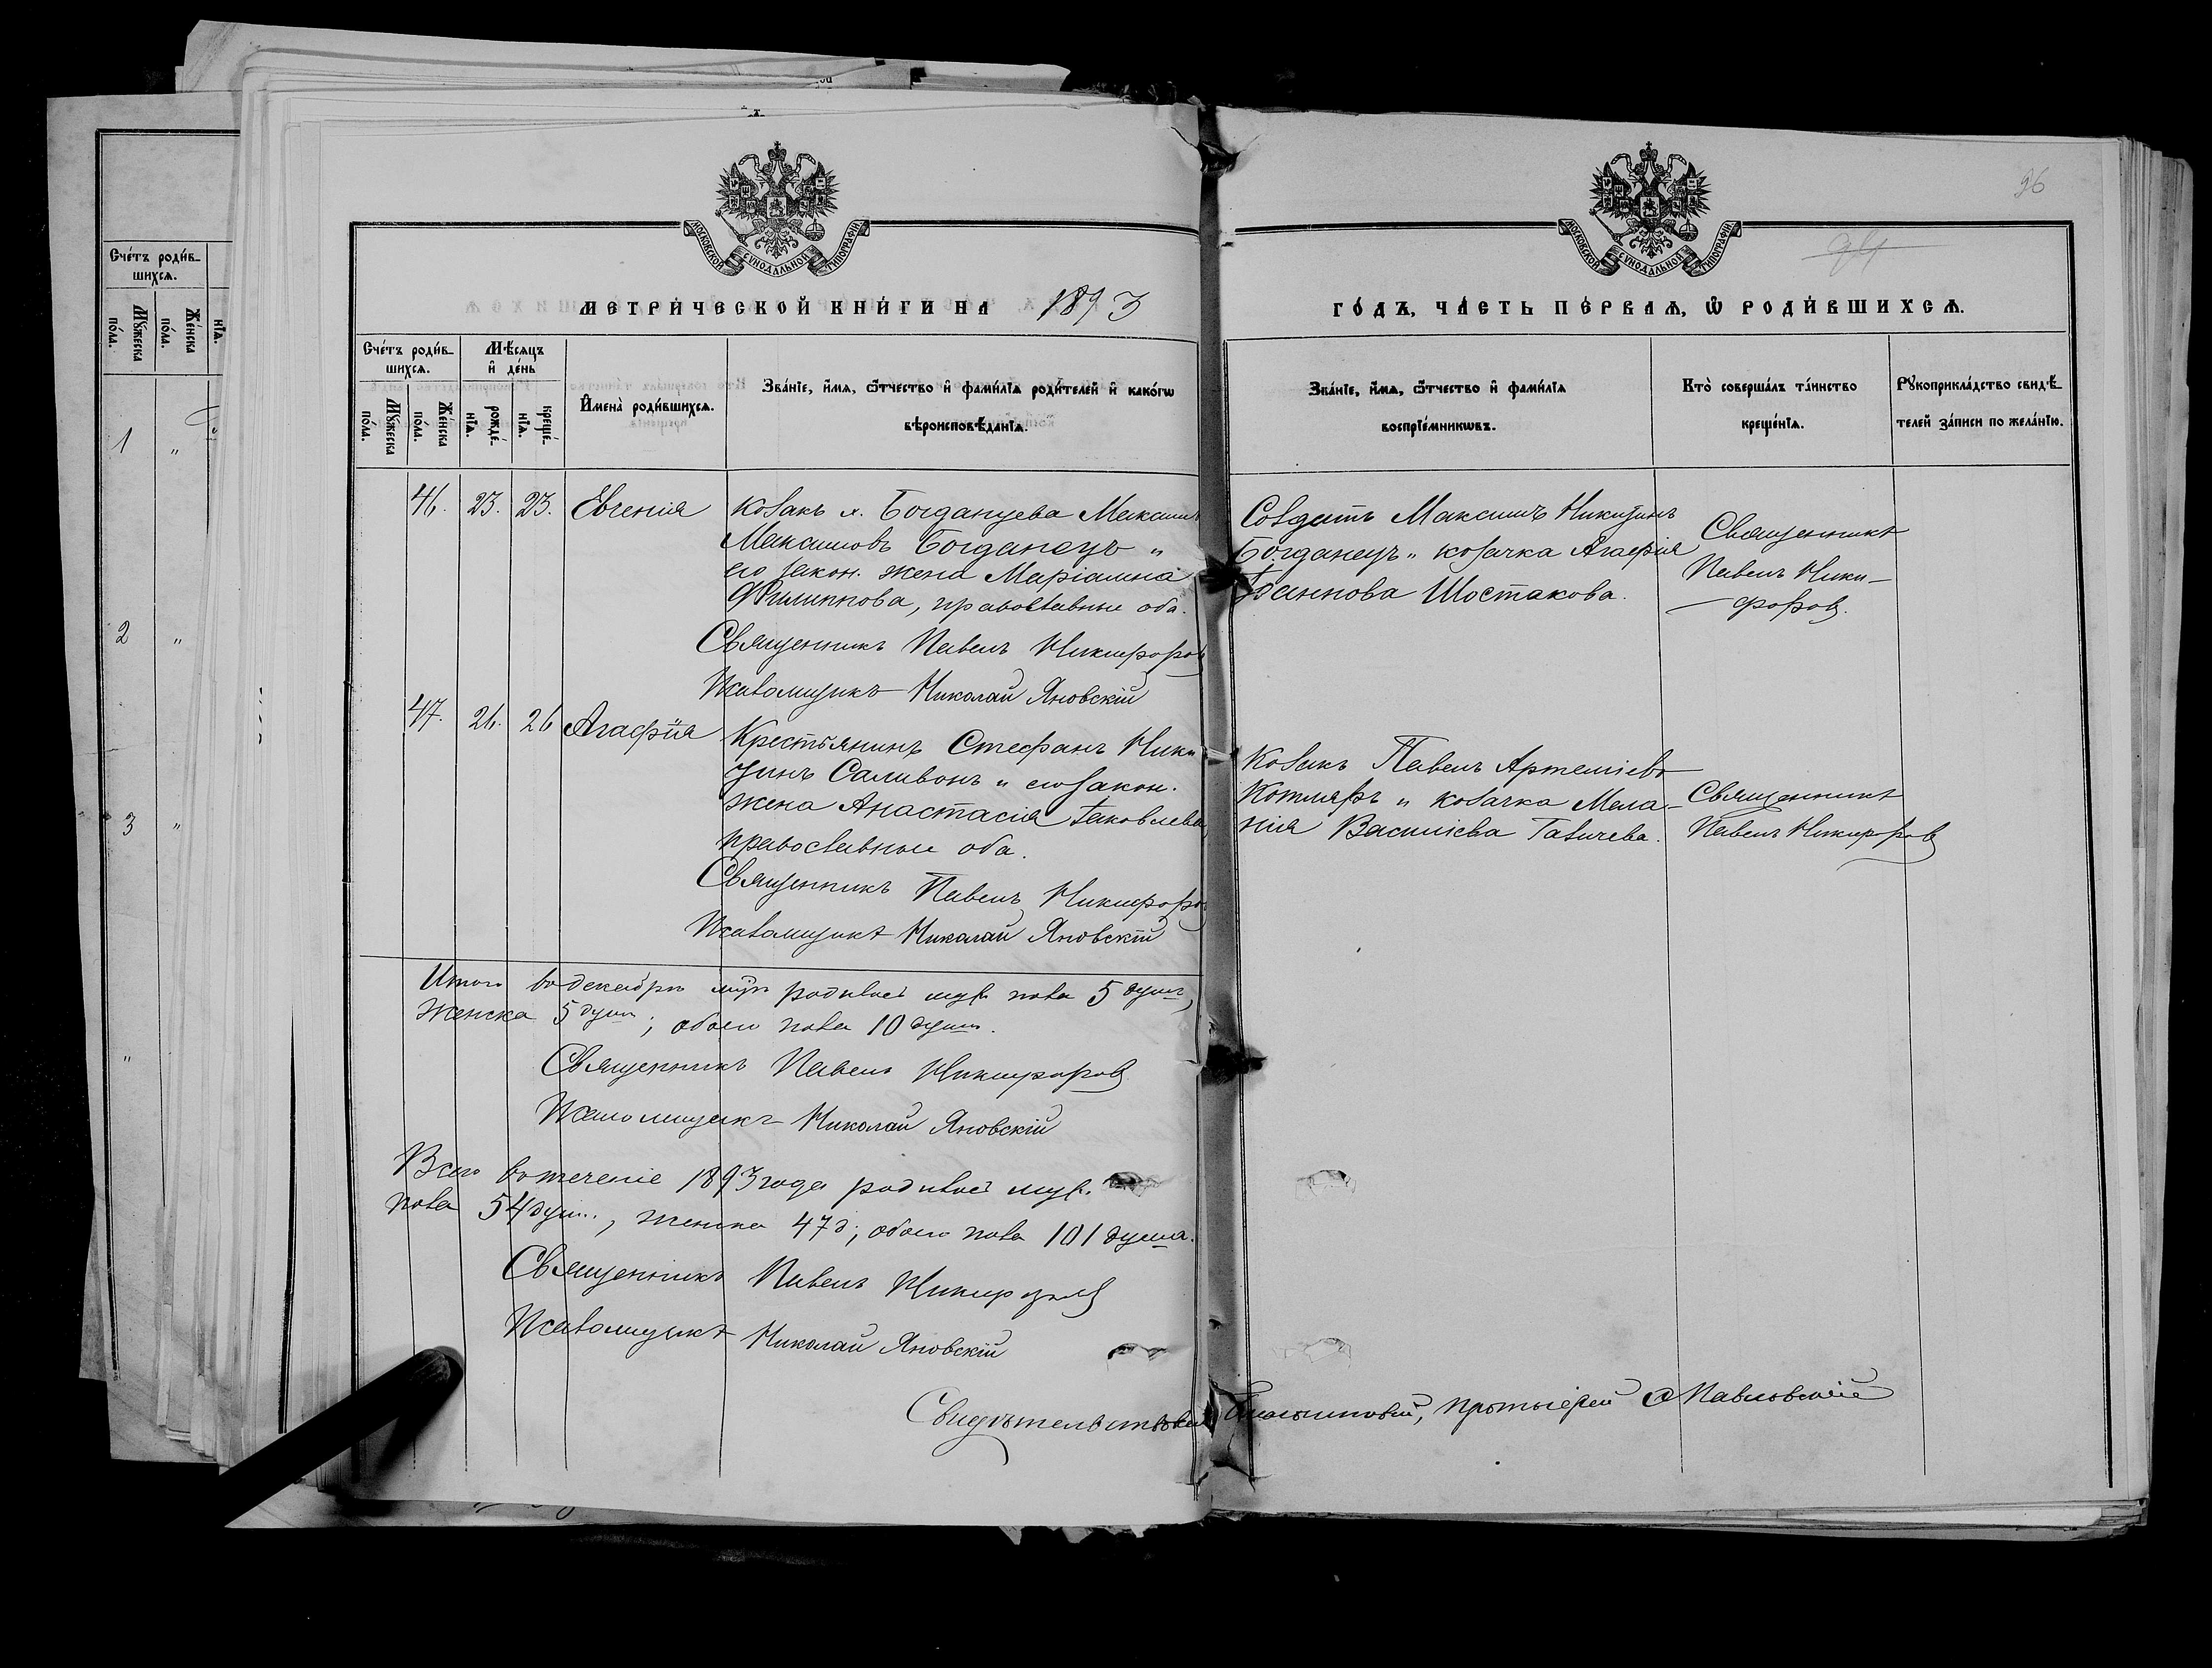 96
94
МОСКОВСКОЙ СѴНОДАЛЬНОЙ ТИПОГРАФІИ
МОСКОВСКОЙ СѴНОДАЛЬНОЙ ТИПОГРАФІИ
МЕТРИ́ЧЕСКОЙ КНИ́ГИ НА 1893
ГО́ДЪ, ЧА́СТЬ ПЕ́РВАѦ, Ѽ РОДИ́ВШИХСѦ.
Сче́тъ роди́в-
шихсѧ.
Мꙋ́жеска
по́ла.
Же́нска
по́ла.
нїѧ.
1 "
2 "
3 "
"
Сче́тъ роди́в-
шихсѧ.
Мꙋ́жеска
по́ла.
Же́нска
по́ла.
Мѣ́сѧцъ
и҆ де́нь
рожде́-
нїѧ.
креще́-
нїѧ.
И҆мена̀ роди́вшихсѧ.
Зва́нїе, и҆́мѧ, ѻ҆́тчество и҆ фами́лїѧ роди́телей и҆ како́гѡ
вѣроисповѣ́данїѧ.
Зва́нїе, и҆́мѧ, ѻ҆́тчество и҆ фами́лїѧ
воспрїе́мникѡвъ.
Кто̀ соверша́лъ та́инство
креще́нїѧ.
Рꙋкоприкла́дство свидѣ́-
телей за́писи по жела́нїю.
46. 23. 23. Евгенія
Козакъ х. Богданцева Максимъ
Максимовъ Богданецъ и
его закон. жена Маріамна
Филиппова, православные оба.
Священникъ Павелъ Никифоровъ
Псаломщикъ Николай Яновскій
Солдатъ Максимъ Никитинъ
Богданецъ и козачка Агафія
Іоаннова Шостакова.
Священникъ
Павелъ Ники-
форовъ.
47. 26. 26 Агафія
Крестьянинъ Стефанъ Ники
тинъ Саливонъ и его закон.
жена Анастасія Іаковлева,
православные оба.
Священникъ Павелъ Никифоровъ
Псаломщикъ Николай Яновскій
Козакъ Павелъ Артеміевъ
Котляръ и козачка Мела-
нія Василіева
Священникъ
Павелъ Никифоровъ
Итого въ декабрѣ мцѣ родилось муж. пола 5 душъ,
женска 5 душъ; обоего пола 10 душъ.
Священникъ Павелъ Никифоровъ
Псаломщикъ Николай Яновскій
Всего въ теченіе 1893 года родилось муж.
пола 54 душ., женска 47 д.; обоего пола 101 душа.
Священникъ Павелъ Никифоровъ
Псаломщикъ Николай Яновскій
Свидѣтельствовалъ Благочинный, протоіерей Павловскій